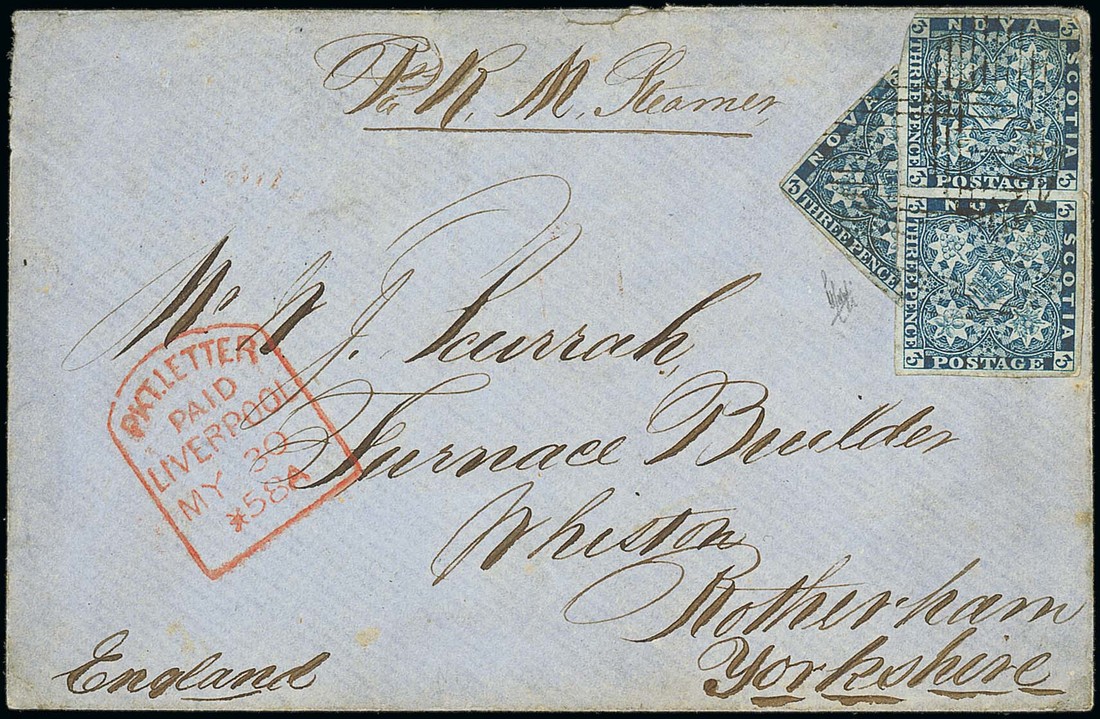 Per R. M. Steamer
NOVA
SCOTIA
THREE PENCE
POSTAGE
3 3 3 3
NOVA
SCOTIA
THREE PENCE
POSTAGE
3 3 3 3
NOVA
3
THREE PENCE
Mr J. Scurrah,
Furnace Builder
Whiston
Rotherham
Yorkshire
England
PKT. LETTER
PAID
LIVERPOOL
MY 30
*58A